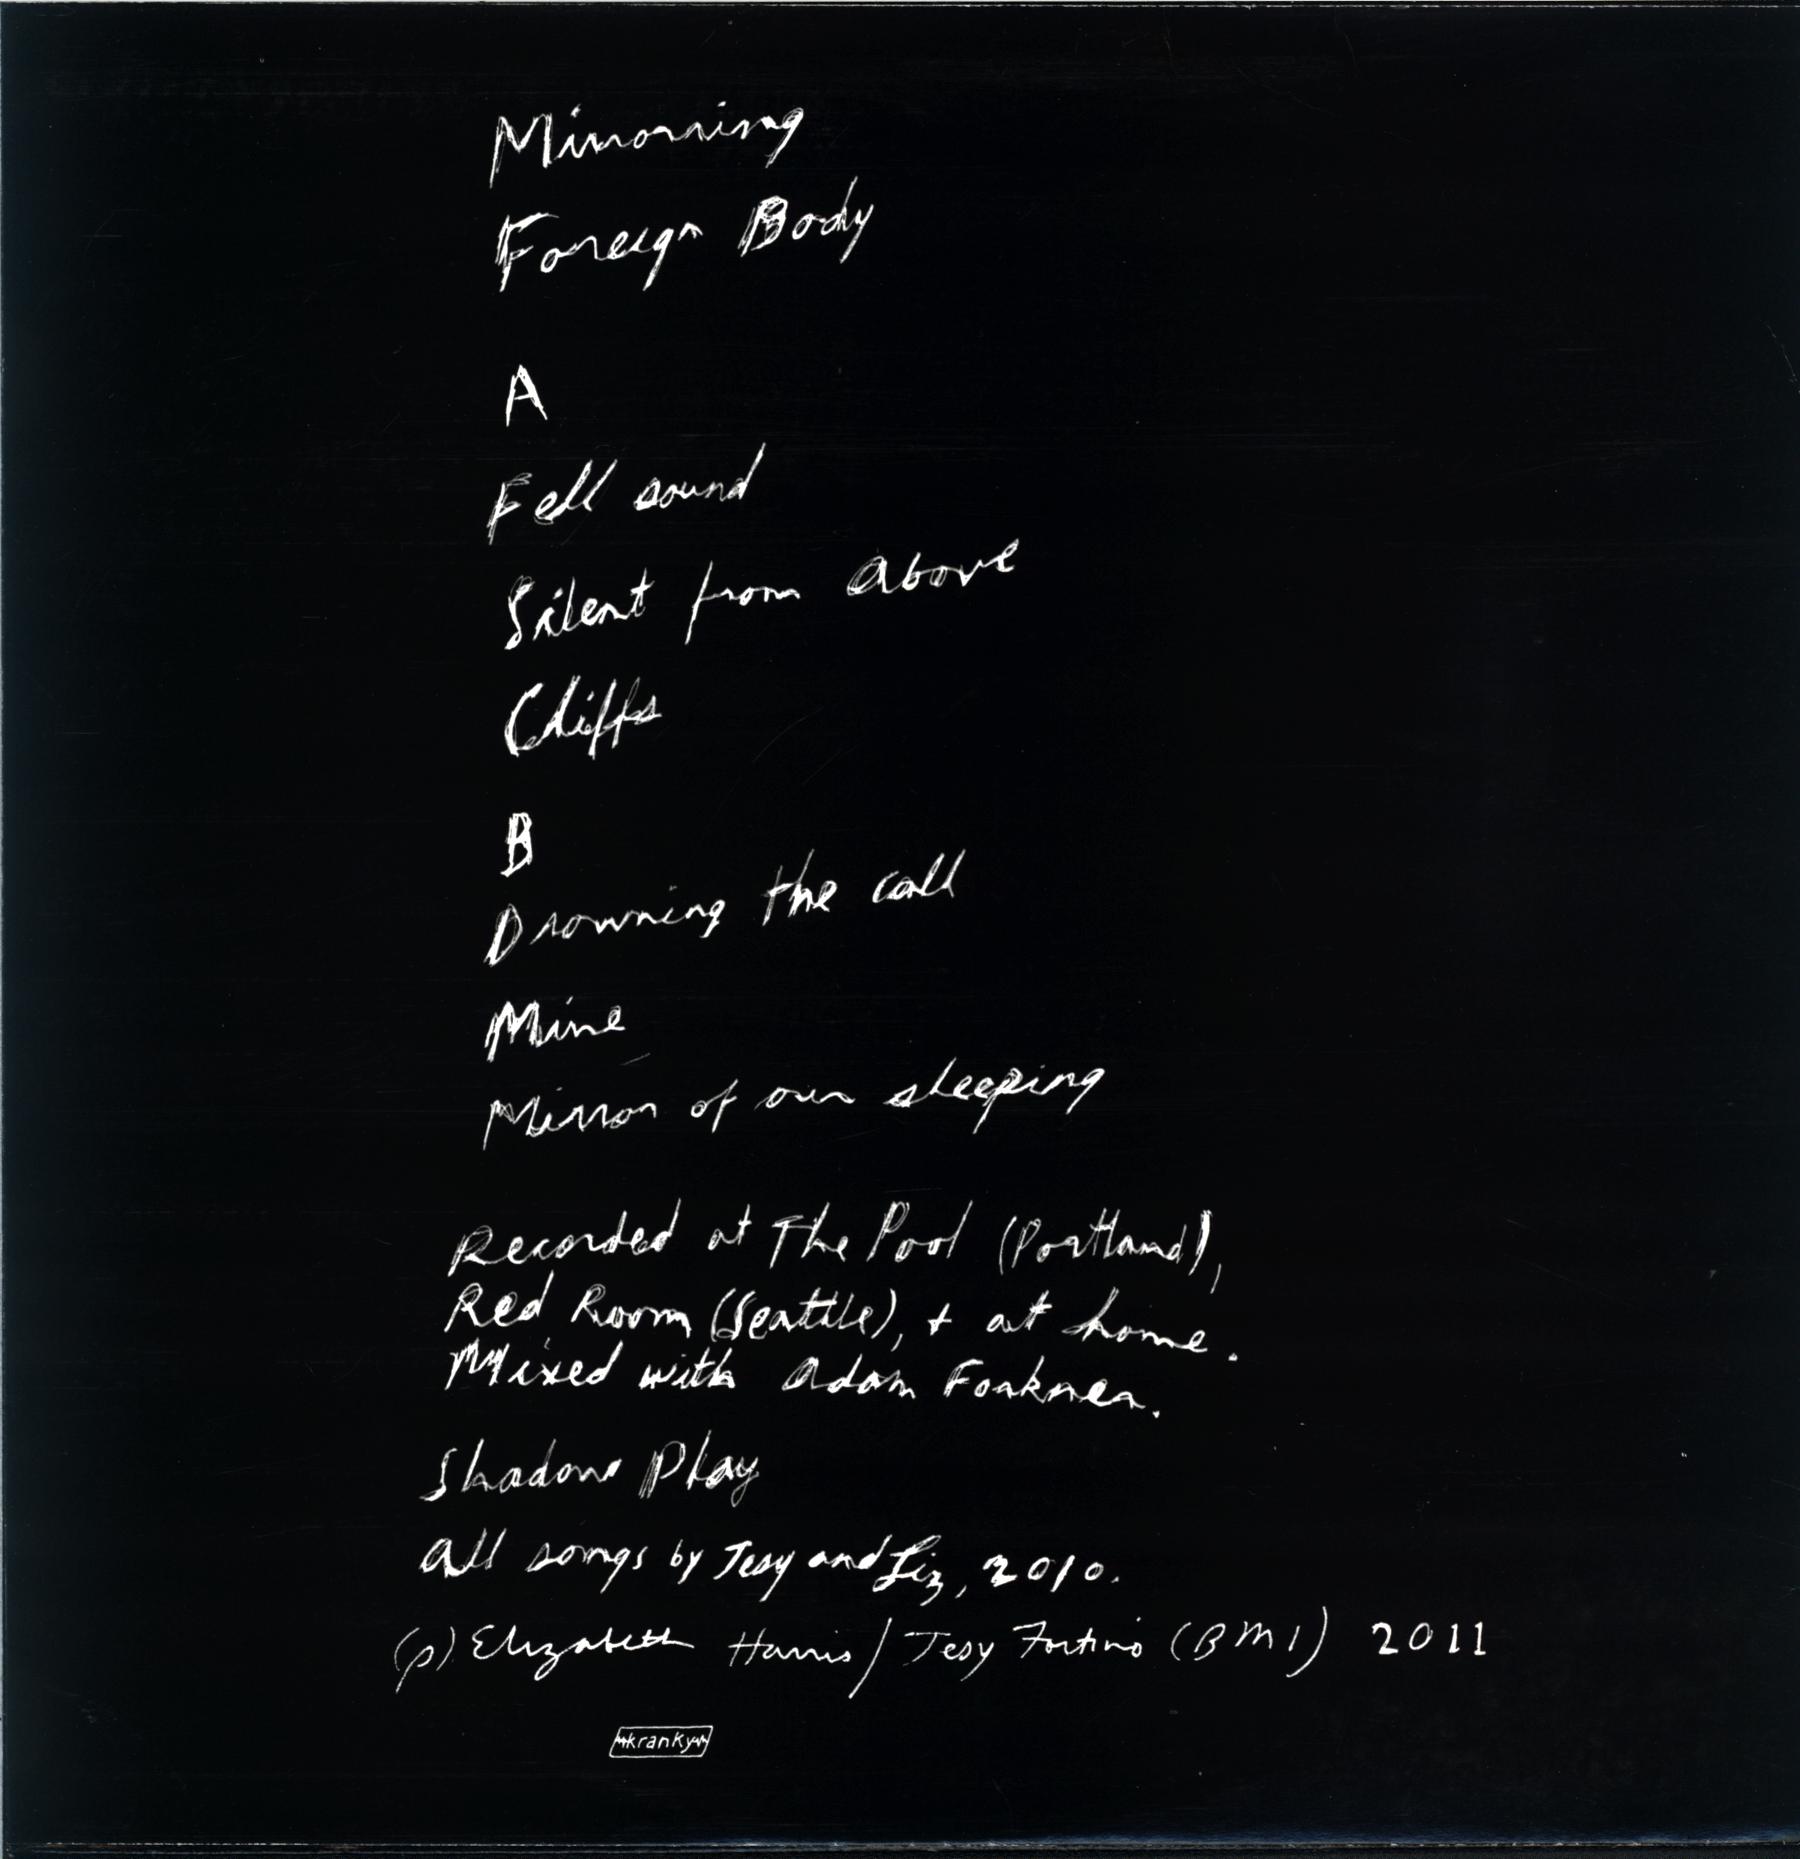 Mirrorring
Foreign Body
A
Fell sound
Silent from above
Cliffs
B
Drowning the call
Mine
Mirror of our sleeping
Recorded at The Pool (Portland),
Red Room (Seattle), + at home.
Mixed with Adam Forkner.
Shadow Play
All songs by Jesy and Liz, 2010.
(p) Elizabeth Harris / Jesy Fortino (BMI) 2011
kranky